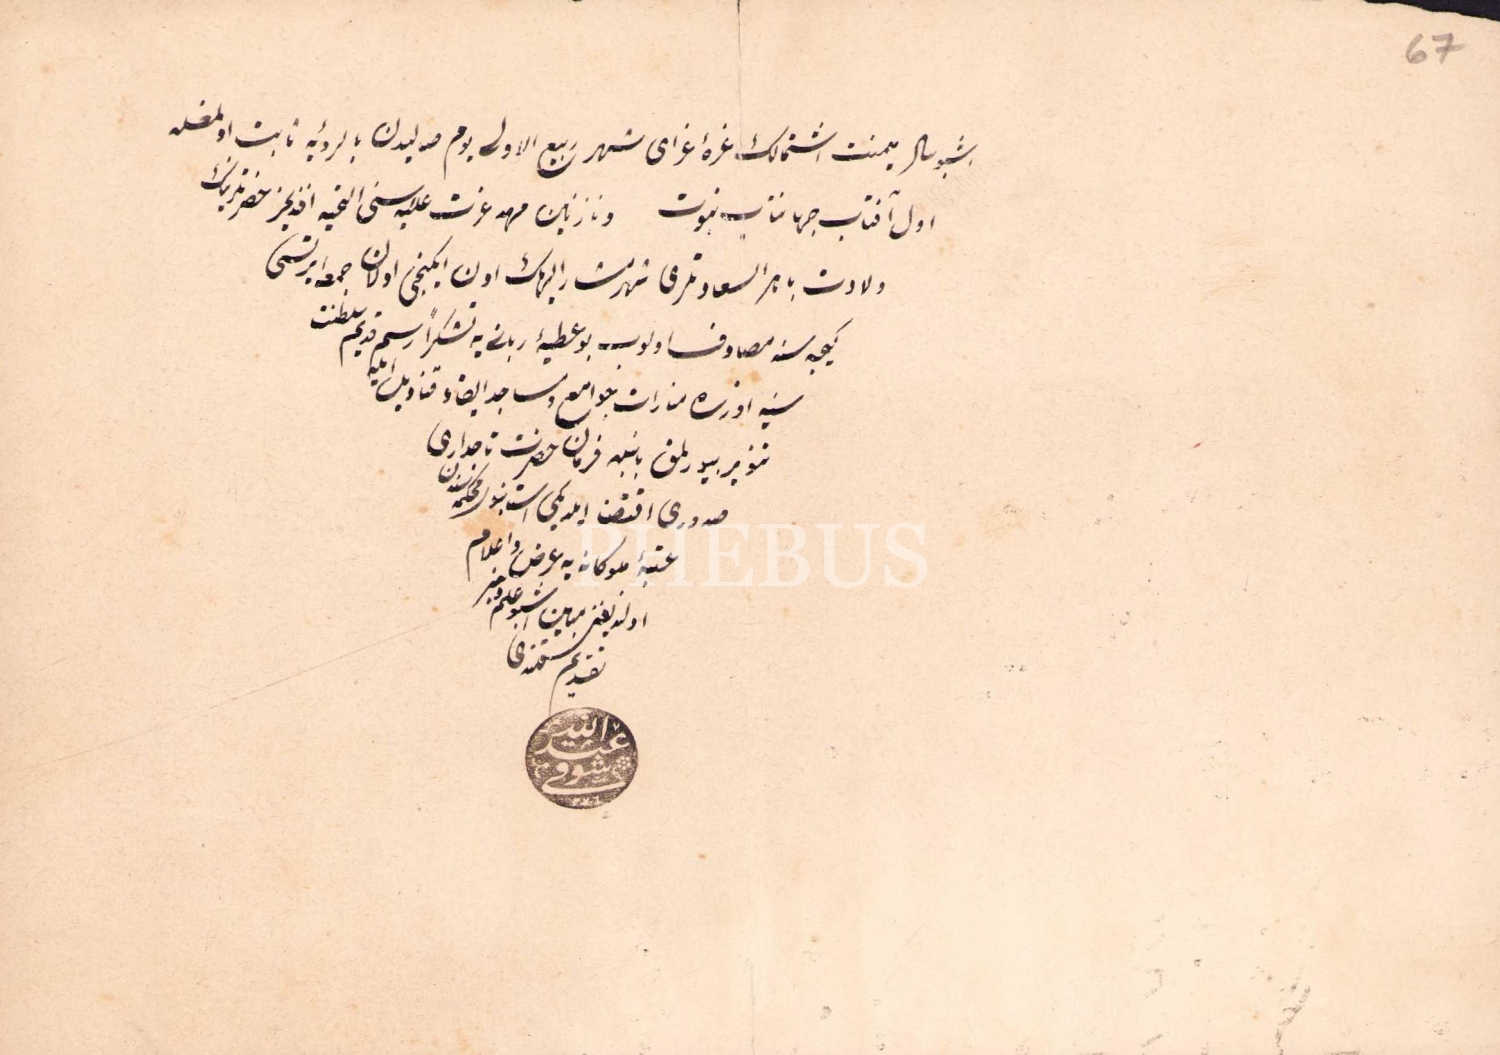 67
اشبو سال یمنت اشتمالك غرۀ غرای شهر ربیع الاولی یوم صالیدن بالرؤیه ثابت اولمغله
اول آفتاب جهانتاب نبوت و نازنین مهد عزت علیه سنی التحیه افندیمز حضرتلرینك
ولادت باهر السعادتلری شهر مشار الیهك اون ایكنجی اولان جمعه ایرتسی
كیجه سنه مصادف اولوب بو عطیۀ ربانیه یه تشكراً رسم قدیم سلطنت
سنیه اوزره منارات جوامع و مساجد ایقاد قنادیل ایله
تنویر بیورلمق بابنده فرمان حضرت تاجداری
صدوری اقتضا ایلدیكی استانبول محكمه سندن
عتبۀ ملوكانه یه عرض و اعلام
اولندیغنی مبین اشبو علم و خبر
تقدیم قلندی
عبد الله شوقی
PHEBUS